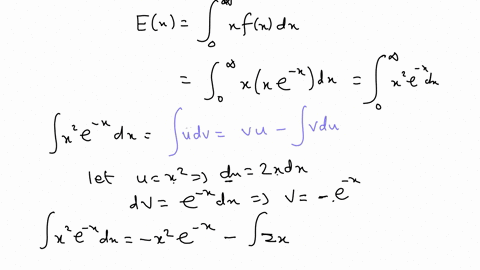 E(x) = ∫₀^∞ x f(x) dx
= ∫₀^∞ x (x e^{-x}) dx = ∫₀^∞ x² e^{-x} dx
∫ x² e^{-x} dx = ∫ u dv = vu - ∫ v du
let u = x² => du = 2x dx
dV = e^{-x} dx => V = -e^{-x}
∫ x² e^{-x} dx = -x² e^{-x} - ∫ 2x